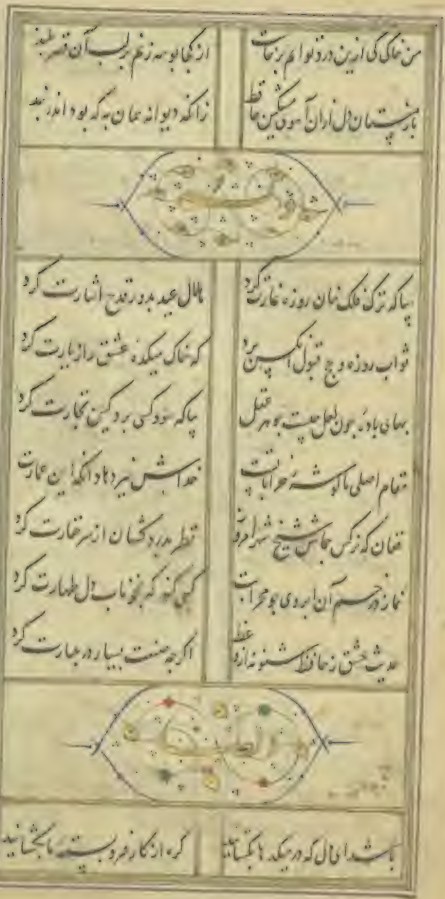 من خاکی که ازین در نتوانم برخاست از کجا بوسه زنم بر لب آن قصر بلند
باز مستان دل از آن مسکین حافظ زانکه دیوانه همان به که بود اندر بند
بیا که ترک فلک خوان روزه غارت کرد هلال عید بدور قدح اشارت کرد
ثواب روزه و حج قبول آنکس برد که خاک میکده عشق را زیارت کرد
بهای باده چون لعل چیست جوهر عقل بیا که سود کسی برد کین تجارت کرد
مقام اصلی ما گوشه خراباتست خداش خیر دهاد آنکه این عمارت کرد
فغان که نرکس جماش شیخ شهر امروز نظر بدرد کشان از سر حقارت کرد
نماز در خم آن ابروی چو محراب کسی کند که بخوناب دل طهارت کرد
حدیث عشق ز حافظ شنو نه از واعظ اگرچه صنعت بسیار در عبارت کرد
باشد ای دل که در میکدها بگشایند گره از کار فرو بسته ما بگشایند